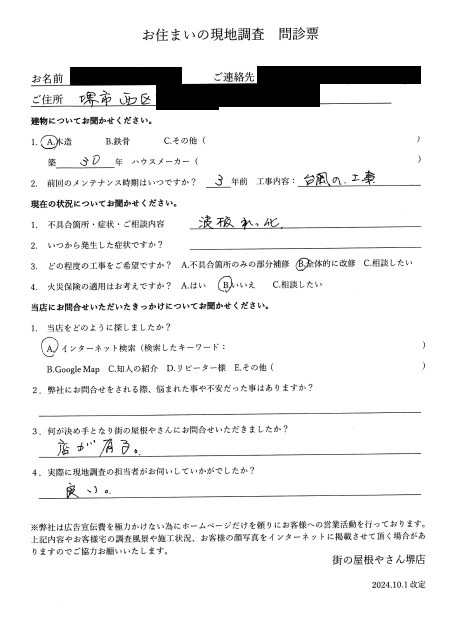 お住まいの現地調査 問診票
お名前 ご連絡先
ご住所 堺市西区
建物についてお聞かせください。
1. A.木造 B.鉄骨 C.その他（ ）
築 30 年 ハウスメーカー（ ）
2. 前回のメンテナンス時期はいつですか？ 3 年前 工事内容： 台風の工事
現在の状況についてお聞かせください。
1. 不具合箇所・症状・ご相談内容 波板れっ化
2. いつから発生した症状ですか？
3. どの程度の工事をご希望ですか？ A.不具合箇所のみの部分補修 B.全体的に改修 C.相談したい
4. 火災保険の適用はお考えですか？ A.はい B.いいえ C.相談したい
当店にお問合せいただいたきっかけについてお聞かせください。
1. 当店をどのように探しましたか？
A. インターネット検索（検索したキーワード： ）
B.Google Map C.知人の紹介 D.リピーター様 E.その他（ ）
2. 弊社にお問合せをされる際、悩まれた事や不安だった事はありますか？
3. 何が決め手となり街の屋根やさんにお問合せいただきましたか？
店が有る。
4. 実際に現地調査の担当者がお伺いしていかがでしたか？
良い。
※弊社は広告宣伝費を極力かけない為にホームページだけを頼りにお客様への営業活動を行っております。
上記内容やお客様宅の調査風景や施工状況、お客様の顔写真をインターネットに掲載させて頂く場合があ
りますのでご協力お願いいたします。
街の屋根やさん堺店
2024.10.1 改定